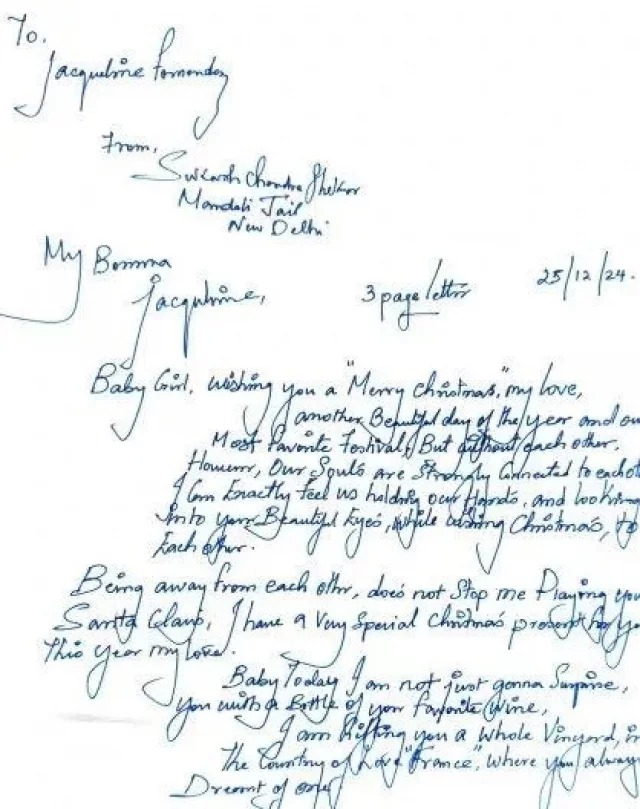 To.
Jacqueline Fernandez
From,
Sukash Chandra Shekar
Mandoli Jail
New Delhi
My Bomma
Jacquline,
3 page letter
25/12/24.
Baby Girl, wishing you a "Merry Christmas," my love,
another Beautiful day of the year and ou
Most favorite Festival, But without each other.
However, Our Souls are Strongly Connected to each ot
I Can Exactly feel us holding our Hands, and looking
into your Beautiful Eyes, while wishing Christmas, to
Each other.
Being away from each othr, does not Stop me Playing you
Santa Claus, I have a Very Special Christmas present for yo
this year my love.
Baby Today I am not just gonna Surprise,
you with a Bottle of your favorite Wine,
I am Gifting you a whole Vinyard, in
the Country of Love "France", where you always
Dreamt of one